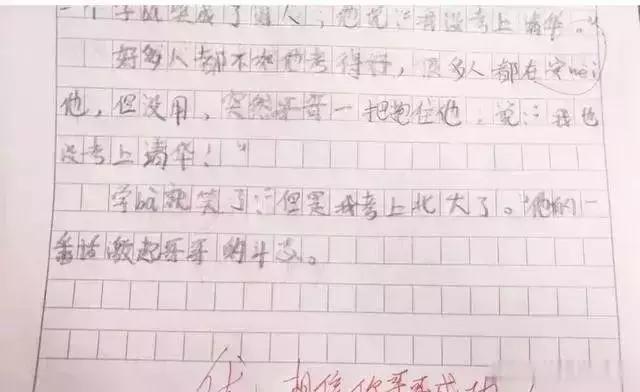 一个学bà哭成了泪人；他说："我没考上清华。"
好多人都不如他考得好，很多人都在安wèi
他，但没用，突然哥哥一把抱住他，说："我也
没考上清华！"
学bà就笑了："但是我考上北大了。"他的一
番话激起哥哥的斗志。
优：相信你哥哥